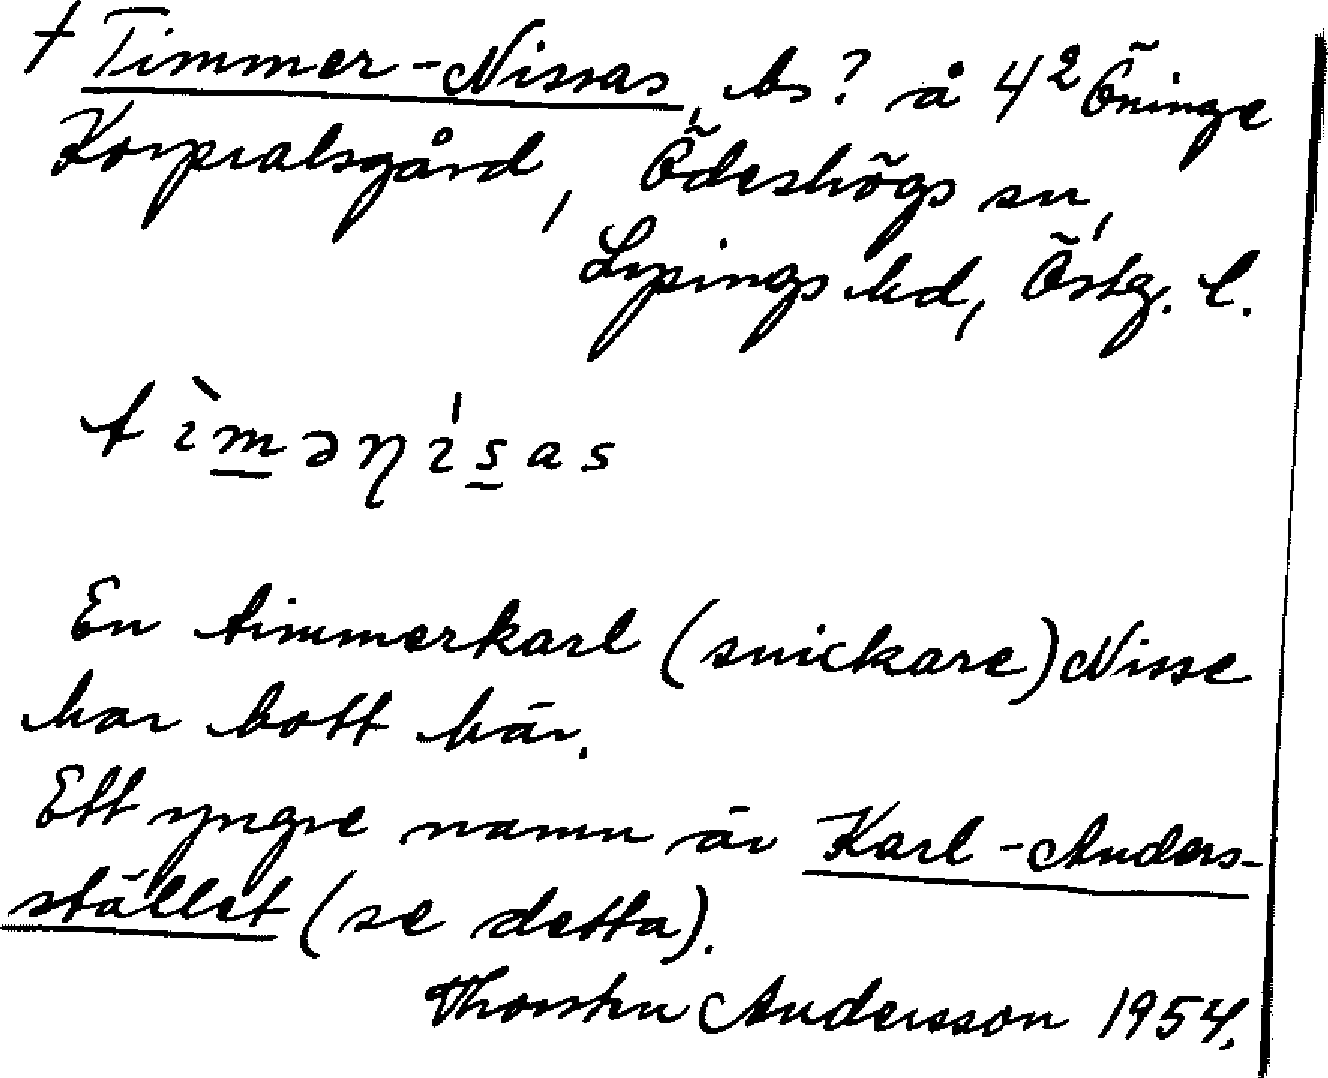 † Timmer-Nissas, bs? å 4² Öninge
Korpralsgård, Ödeshögs sn,
Lysings hd, Östg. l.
tìmənı́sas
En timmerkarl (snickare) Nisse
har bott här.
Ett yngre namn är Karl-Anders-
stället (se detta).
Thorsten Andersson 1954.